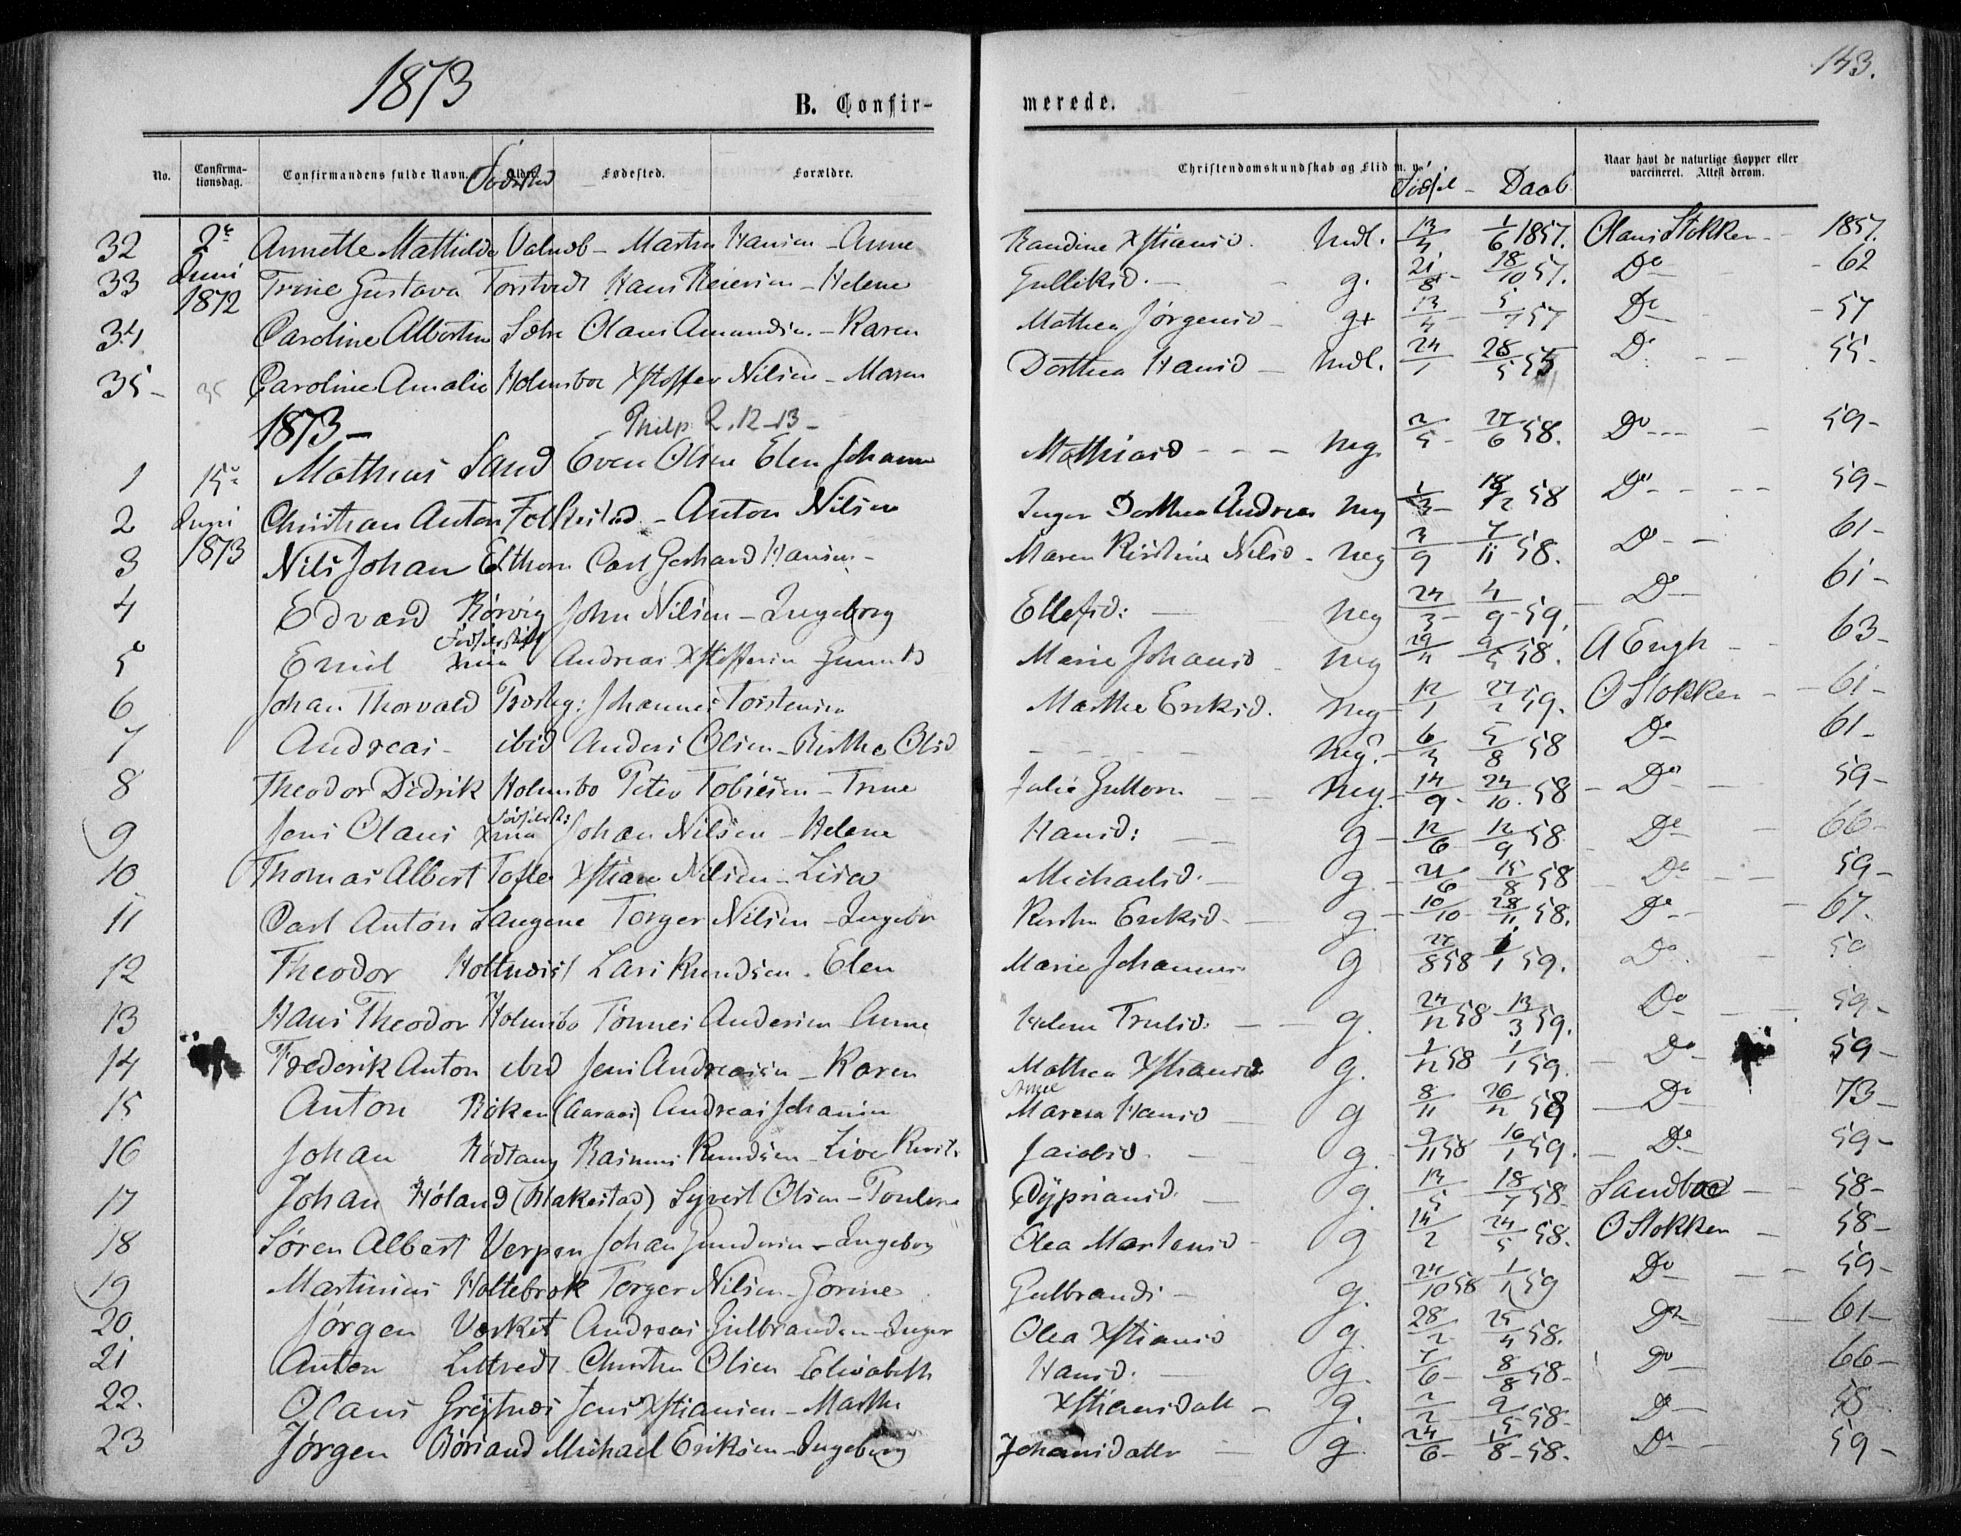 1873
143.
B. Confir- merede.
No. Confirma-tionsdag. Confirmandens fulde Navn. Alder. Fødested. Forældre. Christendomskundskab og Flid m. v. Naar havt de naturlige Kopper eller vaccineret. Attest derom.
Fødested Fødsel - Daab
32 2n Annette Mathilde Valnæb - Martin Hansen - Anne Randine Xstiansd. Mdl. 1/6 1857. Olaus Stokken - 1857.
33 Juni 1872 Trine Gustava Torstvedt Hans Reiersen - Helene Gulliksd. - g. 21/8 - 18/10 57. Do - 62
34 Caroline Albertine Sætre Olaus Amundsen - Karen Mathea Jørgensd - g+ 13/4 5/7 57 Do - 57
35 - 35 Caroline Amalie Holmsboe Xstoffer Nilsen - Maren Dorthea Hansd - Mdl. 24/1 28/5 55 Do - - 55 -
1873 - Philp. 2, 12-13 -
1 15n Mathias Sand Even Olsen Elen Johanne Mathiasd - - - Meg 2/5 - 27/6 58. Do - - - 59 -
2 Juni Christian Anton Folkestad - Anton Nilsen Inger Dorthea Andrea Meg 58 Do - - - 59 -
3 1873 Nils Johan Elthorn Carl Gerhard Hansen - Maren Kirstine Nilsd - Meg 3/9 7/11 58. Do - - 61 -
4 Edvard Rørvig John Nilsen - Ingeborg Ellefsd: - Meg 24/3 - 4/9 - 59. - Do - 61 -
5 Emil Andreas Xstoffersen Gunild Marie Johansd - Meg 58. A Engh - - 63 -
6 Johan Thorvald Præsteg: Johannes Torstensen Marthe Eriksd. Meg - 12/1 27/2 59. O Stokken - - 61 -
7 Andreas - ibid Anders Olsen - Birthe Olsd - - - - - Meg. - 5/8 58 Do - 61 -
8 Theodor Didrik Holmsbo Peter Tobiesen - Trine Julie Guttorm - - Meg. - 14/9 - 24/10. 58 - Do - 59 -
9 Jens Olaus Johan Nilsen - Helene Hansd: - - g - 12/6 12/9 58. - Do - 66 -
10 Thomas Albert Tofte Xstian Nilsen - Lisa Michaelsd. - g. - 21/6 15/8 58 - Do - - 59 -
11 Carl Anton Langene Torger Nilsen - Ingebor Kirstin Eriksd - g - 10/10 - 28/11 58. Do - - 67.
12 Theodor Holtnæs Lars Knudsen - Elen Marie Johannes g 27/8 58 1/1 59. Do. 59
13 Hans Theodor Holmsbo Tønnes Andersen Anne Helene Trulsd. - - g. 24/12 58 - 13/3 59. Do - - 59 -
14 Frederik Anton ibid Jens Andreasen - Karen Mathea Xstiansd g. 1/12 58 1/1 59. - Do - 59 -
15 Anton Røken (Aaraas) Andreas Johansen Anne Maren Hansd - g 8/11 26/12 58 - Do - 73 -
16 Johan Rødtang Rasmus Knudsen - Live Jacobsd. - g. 9/11 58 16/1 59. - Do - 59 -
17 Johan Høland (Blakestad) Syvert Olsen - Pouline Cypriansd. - g. 13/5 18/7 58 - Sandboe - - 58 -
18 Søren Albert Verpen Johan Gundersen - Ingeborg Elea Martensd - g 14/2 24/5 58. O Stokken - 58 -
19 Martinius Holtebræk Torger Nilsen - Gorine Gulbrands - g. 24/10 58 1/1 59 Do - - - 59 -
20. Jørgen Værket Andreas Gulbrandsen - Inger Olea Xstiansd g. 28/2 25/4 58. Do - - 61 -
21 Anton Lettvedt Christen Olsen Elisabeth Hansd. - g. 7/6 - 8/8 58 - Do - 66 -
22. Olaus Grøtnæs Jens Xstiansen - Marthe Xstiansdatt - g. 2/2 9/5 58 - Do - 58 -
23 Jørgen Rørsand Michael Eriksen - Ingeborg Johansdatter - g. 24/6 - 15/8 - 58. Do - 59 -